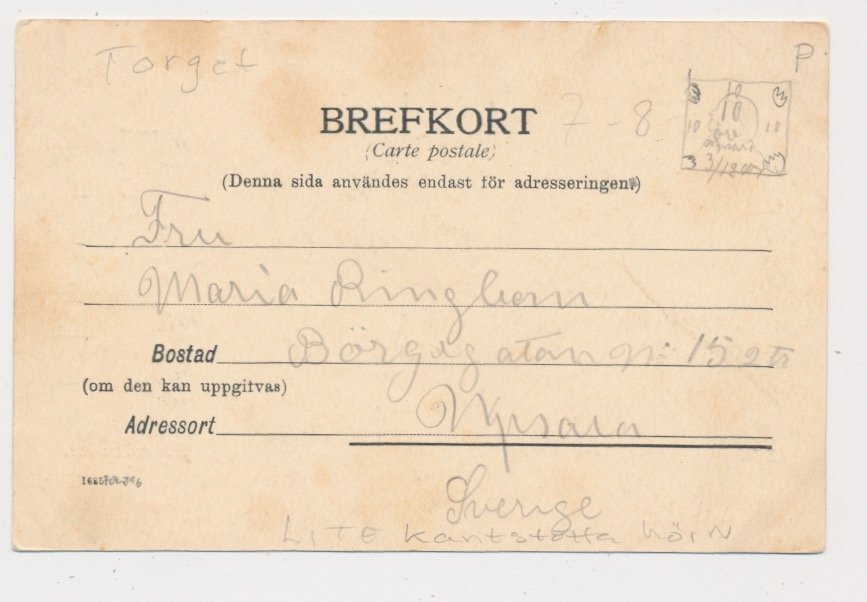 Torget
P.
BREFKORT
7-8
(Carte postale)
(Denna sida användes endast för adresseringen)
10
10
10 öre 10
3 3/18 3
Fru
Maria Ringbom
Bostad Börjegatan No 15 2 tr
(om den kan uppgitvas)
Adressort Upsala
Sverige
LITE kantstötta hörn